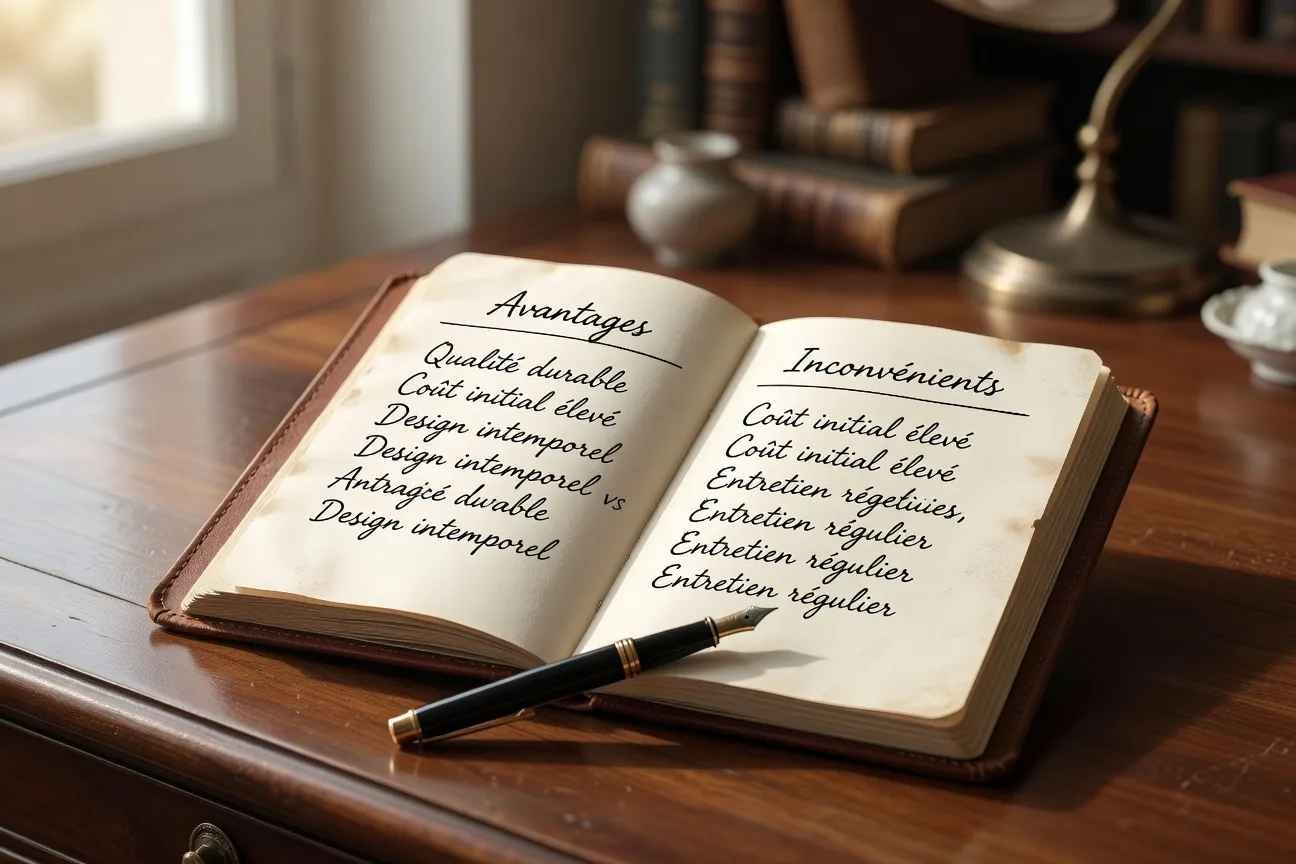 Avantages
Qualité durable
Coût initial élevé
Design intemporel
Design intemporel vs
Antragcé dwable
Design intemporel
Inconvénients
Coût initial élevé
Coût initial élevé
Entretien
Entretien régulier
Entretien régulier
Entretien régulier